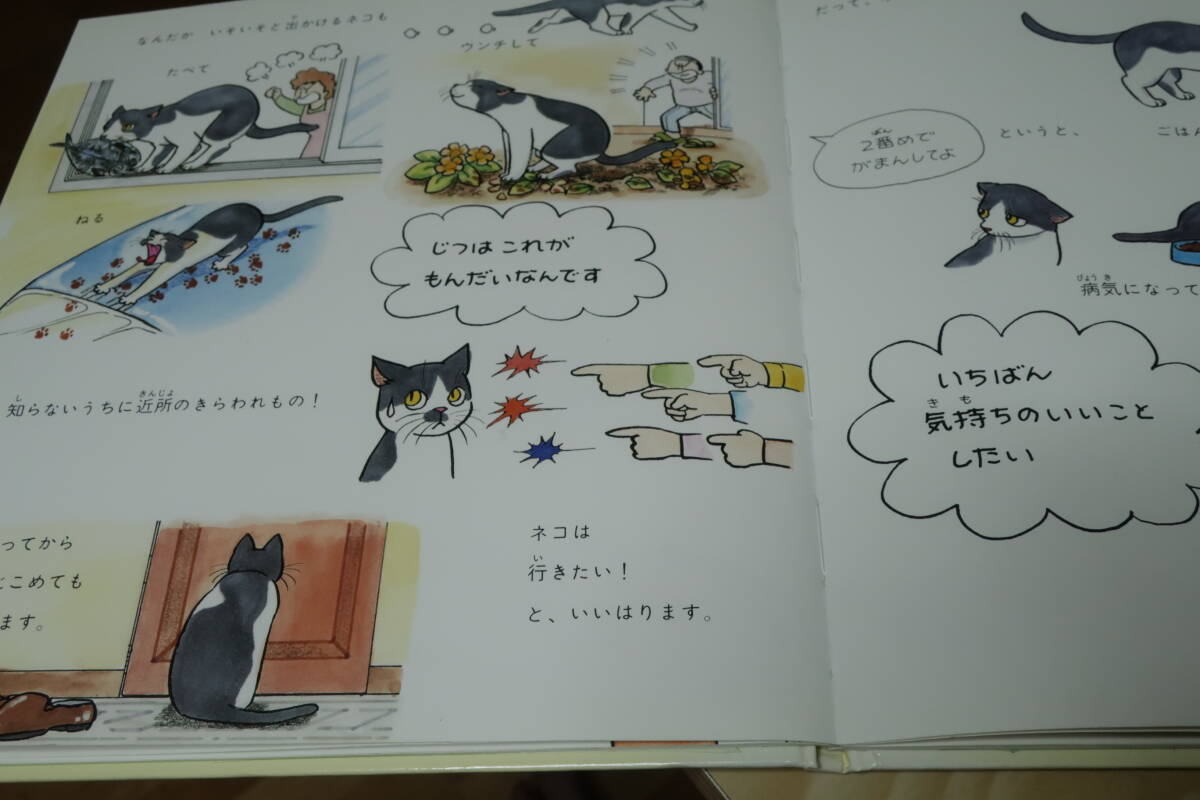 なんだか いそいそと出かけるネコも
たべて
ウンチして
ねる
じつは これが
もんだいなんです
知らないうちに近所のきらわれもの！
ってから
こめても
ます。
ネコは
行きたい！
と、いいはります。
だって、
2番めで
がまんしてよ
というと、
ごはん
病気になって
いちばん
気持ちのいいこと
したい